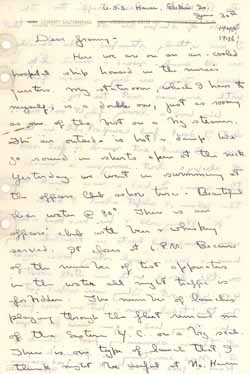 U.S.S. Haven, Bikini Is.
June 30th
1946
Dear Granny -
Here we are on an air cooled
hospital ship housed in the nurses
quarters. My stateroom which I have to
myself, is a double one, just as roomy
as one of the best on a big steamer.
The air outside is hot & damp. We
go around in shorts & open at the neck
Yesterday we went in swimming at
the officers Club ashore here. Beautiful
clear water @ 80°. There is an
officers' club with beer & whiskey
served. It closes at 6 P.M. Because
of the number of test apparatus
in the water all night traffic is
forbidden. The number of launches
plying through the fleet remind me
of the Eastern Y.C. on a big scale.
There is one type of launch that I
think might be useful at No. Haven